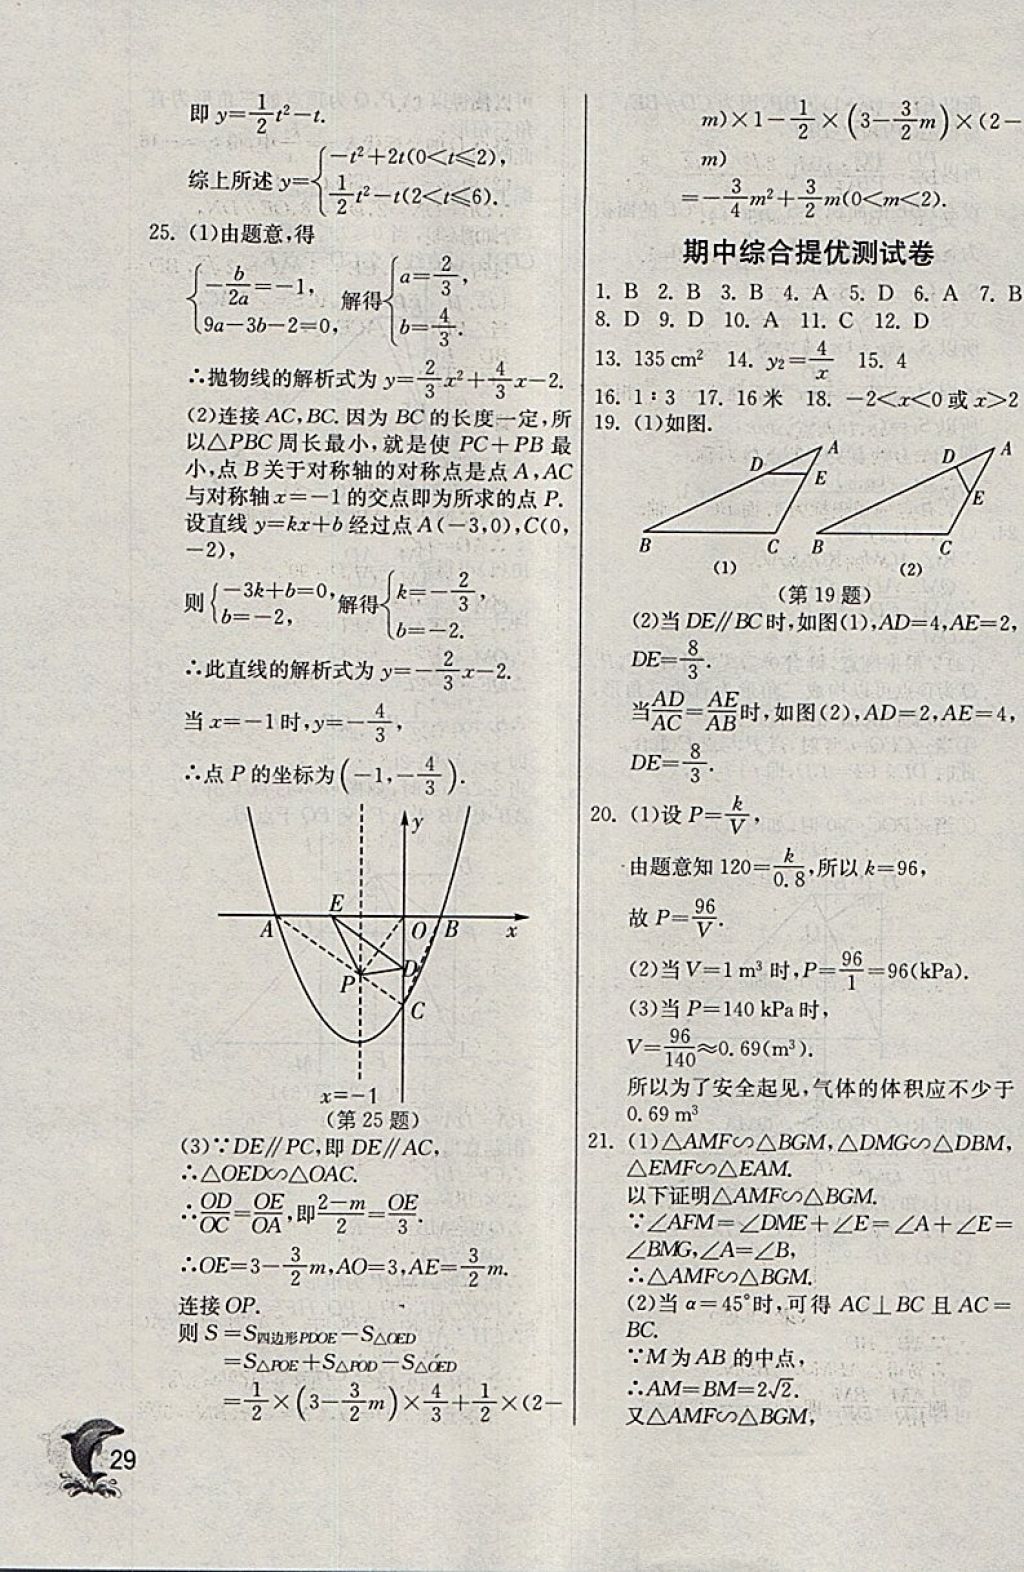 即 y=1/2t²-t.
综上所述 y={-t²+2t(0<t≤2),
1/2t²-t(2<t≤6).
25. (1)由题意,得
{-b/2a=-1,
9a-3b-2=0,
解得{a=2/3,
b=4/3.
∴抛物线的解析式为 y=2/3x²+4/3x-2.
(2)连接 AC,BC. 因为 BC 的长度一定,所
以△PBC 周长最小,就是使 PC+PB 最
小,点 B 关于对称轴的对称点是点 A,AC
与对称轴 x=-1 的交点即为所求的点 P.
设直线 y=kx+b 经过点 A(-3,0),C(0,
-2),
则{-3k+b=0,
b=-2,
解得{k=-2/3,
b=-2.
∴此直线的解析式为 y=-2/3x-2.
当 x=-1 时,y=-4/3,
∴点 P 的坐标为(-1,-4/3).
y
E
A
O
B
x
P
D
C
x=-1
(第 25 题)
(3)∵DE∥PC,即 DE∥AC,
∴△OED∽△OAC.
∴OD/OC=OE/OA,即2-m/2=OE/3.
∴OE=3-3/2m,AO=3,AE=3/2m.
连接 OP.
则 S=S四边形PDOE-S△OED
=S△POE+S△POD-S△OED
=1/2×(3-3/2m)×4/3+1/2×(2-
29
m)×1-1/2×(3-3/2m)×(2-
m)
=-3/4m²+3/2m(0<m<2).
期中综合提优测试卷
1. B 2. B 3. B 4. A 5. D 6. A 7. B
8. D 9. D 10. A 11. C 12. D
13. 135 cm² 14. y₂=4/x 15. 4
16. 1∶3 17. 16 米 18. -2<x<0 或 x>2
19. (1)如图.
A
D
E
B
C
(1)
A
D
E
B
C
(2)
(第 19 题)
(2)当 DE∥BC 时,如图(1),AD=4,AE=2,
DE=8/3.
当AD/AC=AE/AB时,如图(2),AD=2,AE=4,
DE=8/3.
20. (1)设 P=k/V,
由题意知 120=k/0.8,所以 k=96,
故 P=96/V.
(2)当 V=1 m³ 时,P=96/1=96(kPa).
(3)当 P=140 kPa 时,
V=96/140≈0.69(m³).
所以为了安全起见,气体的体积应不少于
0.69 m³
21. (1)△AMF∽△BGM,△DMG∽△DBM,
△EMF∽△EAM.
以下证明△AMF∽△BGM.
∵∠AFM=∠DME+∠E=∠A+∠E=
∠BMG,∠A=∠B,
∴△AMF∽△BGM.
(2)当 α=45°时,可得 AC⊥BC 且 AC=
BC.
∵M 为 AB 的中点,
∴AM=BM=2√2.
又△AMF∽△BGM,